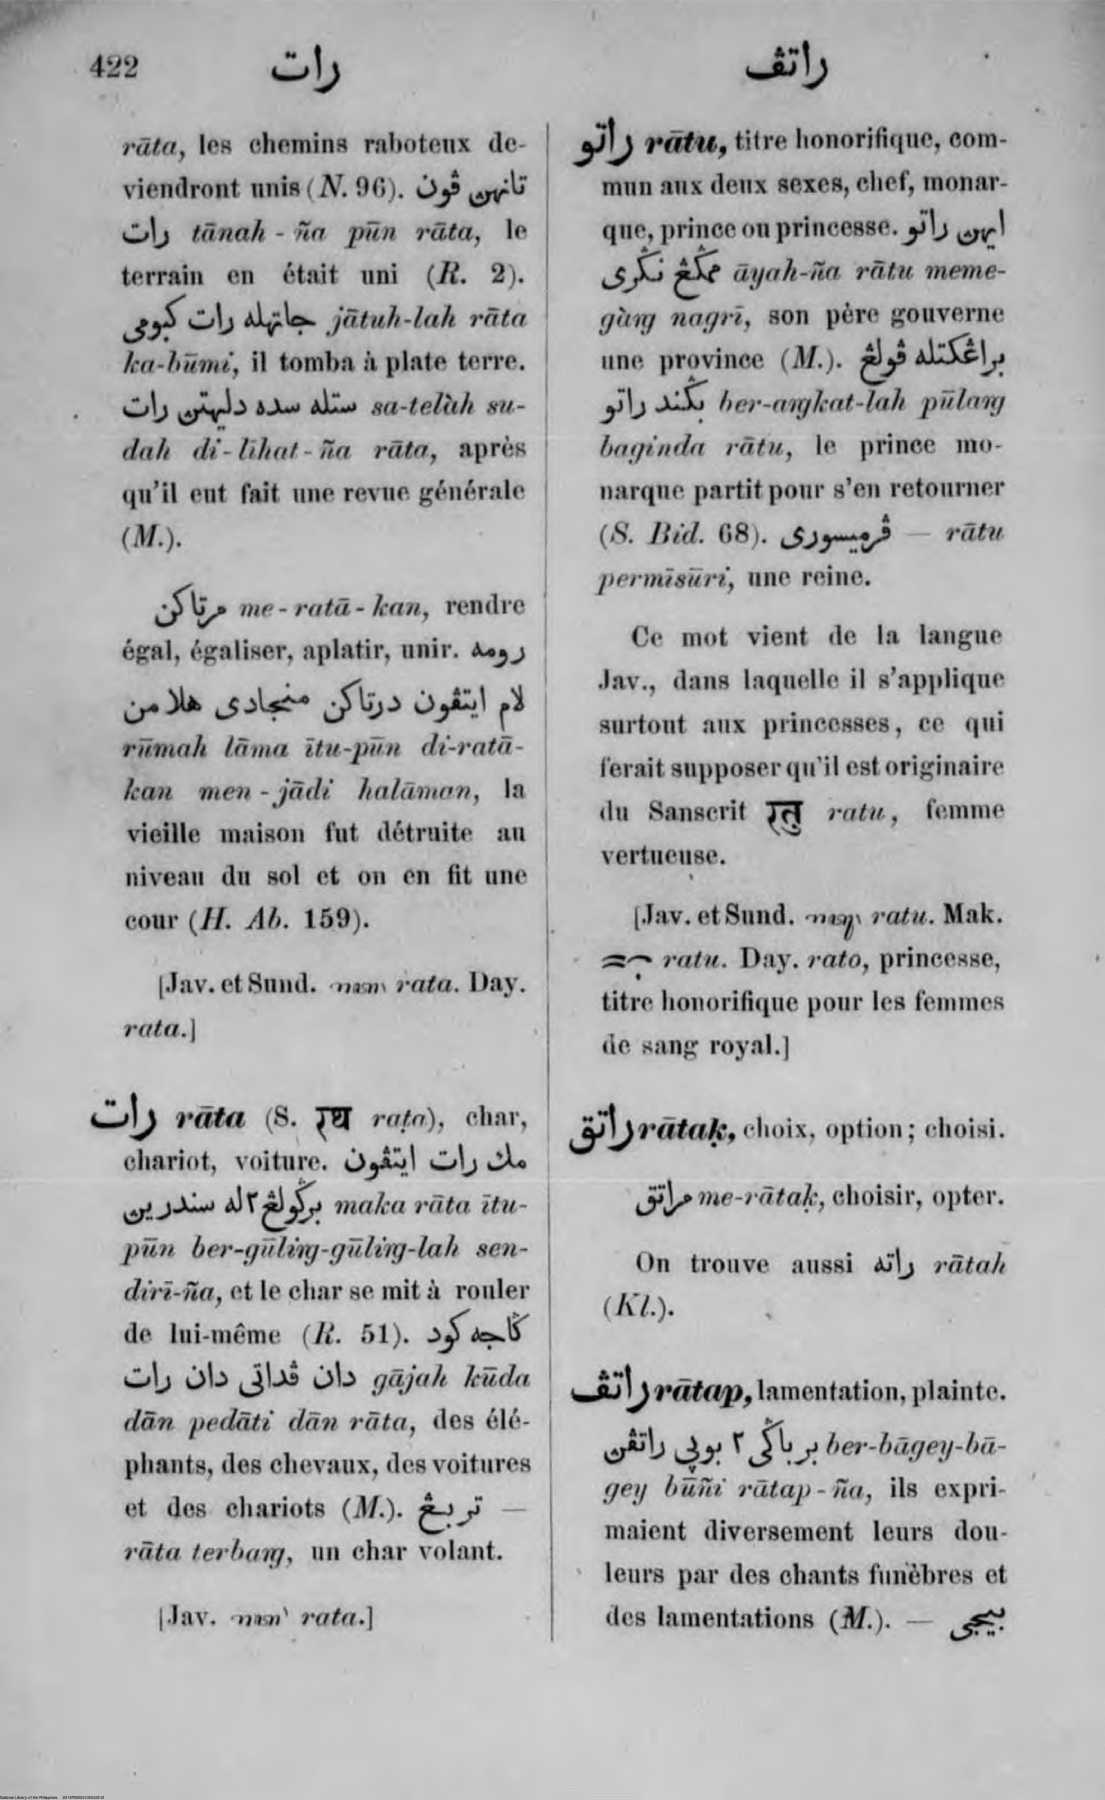 422
رات
راتڤ
rāta, les chemins raboteux de-
viendront unis (N. 96). تانهن ڤون
رات tānah-ña pūn rāta, le
terrain en était uni (R. 2).
جاتهله رات کبومي jātuh-lah rāta
ka-būmi, il tomba à plate terre.
ستله سده دليهتن رات sa-telàh su-
dah di-līhat-ña rāta, après
qu'il eut fait une revue générale
(M.).
مرتاکن me-ratā-kan, rendre
égal, égaliser, aplatir, unir. رومه
لام ايتڤون درتاکن منجادى هلامن
rūmah lāma ītu-pūn di-ratā-
kan men-jādi halāman, la
vieille maison fut détruite au
niveau du sol et on en fit une
cour (H. Ab. 159).
[Jav. et Sund. rata. Day.
rata.]
رات rāta (S. रथ raṭa), char,
chariot, voiture. مك رات ايتڤون
برݢولڠ٢له سندرين maka rāta ītu-
pūn ber-gūling-gūling-lah sen-
dirī-ña, et le char se mit à rouler
de lui-même (R. 51). ݢاجه کود
دان ڤداتى دان رات gājah kūda
dān pedāti dān rāta, des élé-
phants, des chevaux, des voitures
et des chariots (M.). تربڠ —
rāta terbang, un char volant.
[Jav. rata.]
راتو rātu, titre honorifique, com-
mun aux deux sexes, chef, monar-
que, prince ou princesse. ايهن راتو
ممݢڠ نݢرى āyah-ña rātu meme-
gàng nagrī, son père gouverne
une province (M.). براڠکتله ڤولڠ
بݢند راتو ber-angkat-lah pūlang
baginda rātu, le prince mo-
narque partit pour s'en retourner
(S. Bid. 68). ڤرميسورى — rātu
permīsūri, une reine.
Ce mot vient de la langue
Jav., dans laquelle il s'applique
surtout aux princesses, ce qui
ferait supposer qu'il est originaire
du Sanscrit रतु ratu, femme
vertueuse.
[Jav. et Sund. ratu. Mak.
ratu. Day. rato, princesse,
titre honorifique pour les femmes
de sang royal.]
راتق rātaḳ, choix, option; choisi.
مراتق me-rātaḳ, choisir, opter.
On trouve aussi راته rātah
(Kl.).
راتڤ rātap, lamentation, plainte.
برباݢى ٢ بوڽي راتڤن ber-bāgey-bā-
gey būñi rātap-ña, ils expri-
maient diversement leurs dou-
leurs par des chants funèbres et
des lamentations (M.). —